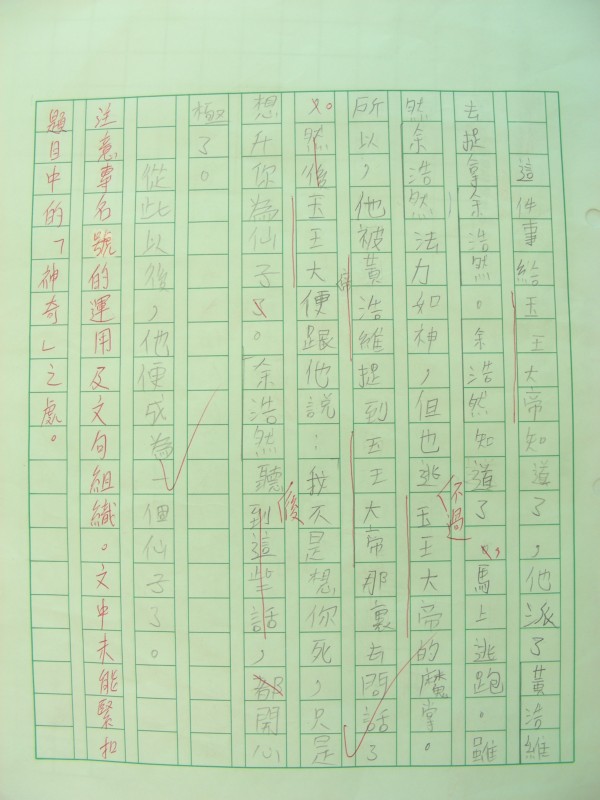 這件事給玉王大帝知道了，他派了黃浩維
去捉拿余浩然。余浩然知道了，馬上逃跑。雖
然余浩然法力如神，但也逃不過玉王大帝的魔掌。
所以，他被黃浩維捉到玉王大帝那裏去問話了
。然後玉王大帝便跟他說：我不是想你死，只是
想升你為仙子。余浩然聽到後這些話，都開心
極了。
從此以後，他便成為一個仙子了。
注意專名號的運用及文句組織。文中未能緊扣
題目中的「神奇」之處。